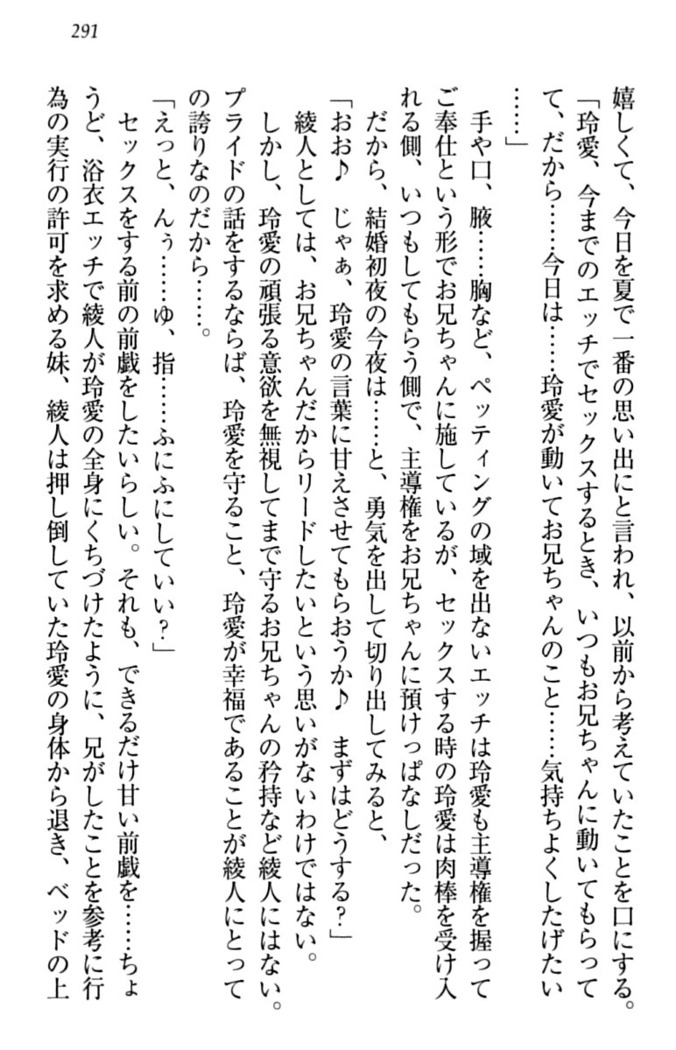 291
嬉しくて、今日を夏で一番の思い出にと言われ、以前から考えていたことを口にする。
「玲愛、今までのエッチでセックスするとき、いつもお兄ちゃんに動いてもらって
て、だから……今日は……玲愛が動いてお兄ちゃんのこと……気持ちよくしたげたい
……」
手や口、腋……胸など、ペッティングの域を出ないエッチは玲愛も主導権を握って
ご奉仕という形でお兄ちゃんに施しているが、セックスする時の玲愛は肉棒を受け入
れる側、いつもしてもらう側で、主導権をお兄ちゃんに預けっぱなしだった。
だから、結婚初夜の今夜は……と、勇気を出して切り出してみると、
「おお♪　じゃぁ、玲愛の言葉に甘えさせてもらおうか♪　まずはどうする？」
綾人としては、お兄ちゃんだからリードしたいという思いがないわけではない。
しかし、玲愛の頑張る意欲を無視してまで守るお兄ちゃんの矜持など綾人にはない。
プライドの話をするならば、玲愛を守ること、玲愛が幸福であることが綾人にとって
の誇りなのだから……。
「えっと、んぅ……ゆ、指……ふにふにしていい？」
セックスをする前の前戯をしたいらしい。それも、できるだけ甘い前戯を……ちょ
うど、浴衣エッチで綾人が玲愛の全身にくちづけたように、兄がしたことを参考に行
為の実行の許可を求める妹、綾人は押し倒していた玲愛の身体から退き、ベッドの上